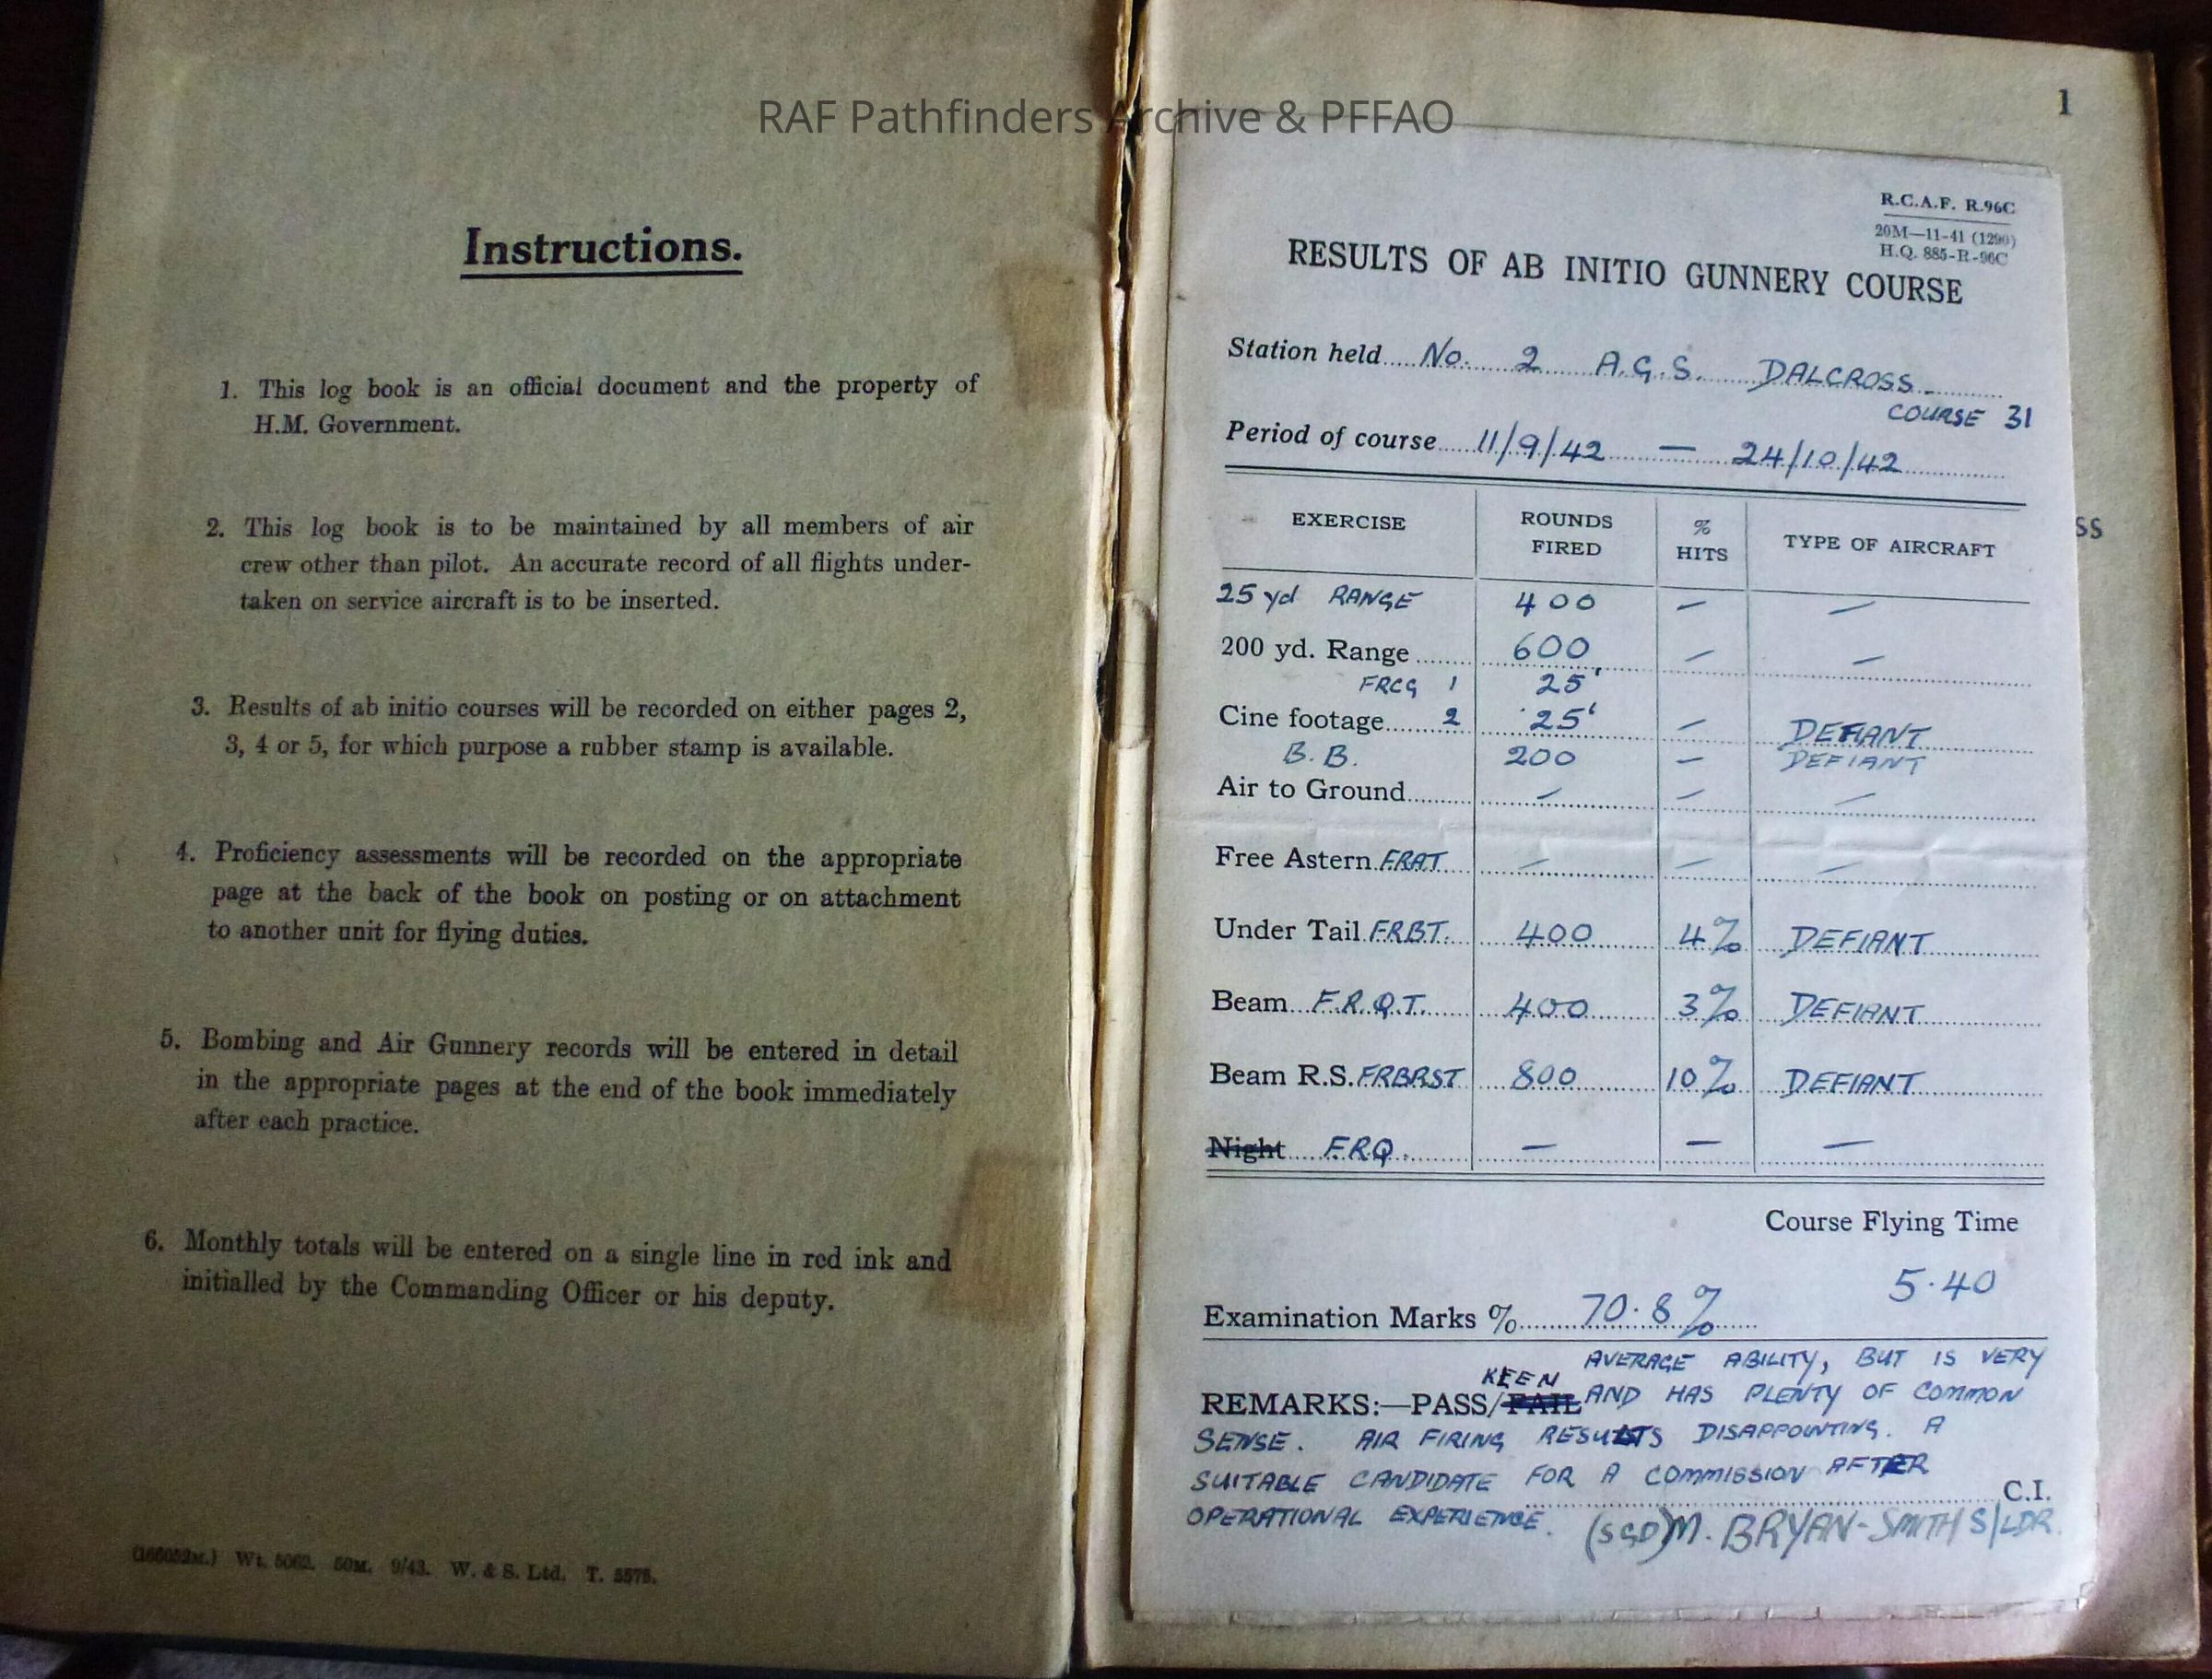 RAF Pathfinders Archive & PFFAO
Instructions.
1. This log book is an official document and the property of
H.M. Government.
2. This log book is to be maintained by all members of air
crew other than pilot. An accurate record of all flights under-
taken on service aircraft is to be inserted.
3. Results of ab initio courses will be recorded on either pages 2,
3, 4 or 5, for which purpose a rubber stamp is available.
4. Proficiency assessments will be recorded on the appropriate
page at the back of the book on posting or on attachment
to another unit for flying duties.
5. Bombing and Air Gunnery records will be entered in detail
in the appropriate pages at the end of the book immediately
after each practice.
6. Monthly totals will be entered on a single line in red ink and
initialled by the Commanding Officer or his deputy.
Wt. 5062. 50M. 9/43. W. & S. Ltd. T. 5575.
1
R.C.A.F. R.96C
20M—11-41 (1290)
H.Q. 885-R-96C
RESULTS OF AB INITIO GUNNERY COURSE
Station held No. 2 A.G.S. DALCROSS
COURSE 31
Period of course 11/9/42 — 24/10/42
EXERCISE ROUNDS FIRED % HITS TYPE OF AIRCRAFT
SS
25 yd RANGE 400 — —
200 yd. Range 600 — —
FRCG 1 25'
Cine footage 2 25' — DEFIANT
B.B. 200 — DEFIANT
Air to Ground — — —
Free Astern FRAT — — —
Under Tail FRBT. 400 4% DEFIANT
Beam F.R.Q.T. 400 3% DEFIANT
Beam R.S. FRBRST 800 10% DEFIANT
Night FRQ. — — —
Course Flying Time
5.40
Examination Marks % 70.8%
AVERAGE ABILITY, BUT IS VERY
REMARKS:—PASS/FAIL KEEN AND HAS PLENTY OF COMMON
SENSE. AIR FIRING RESULTS DISAPPOINTING. A
SUITABLE CANDIDATE FOR A COMMISSION AFTER
OPERATIONAL EXPERIENCE. C.I.
(SGD) M. BRYAN-SMITH S/LDR